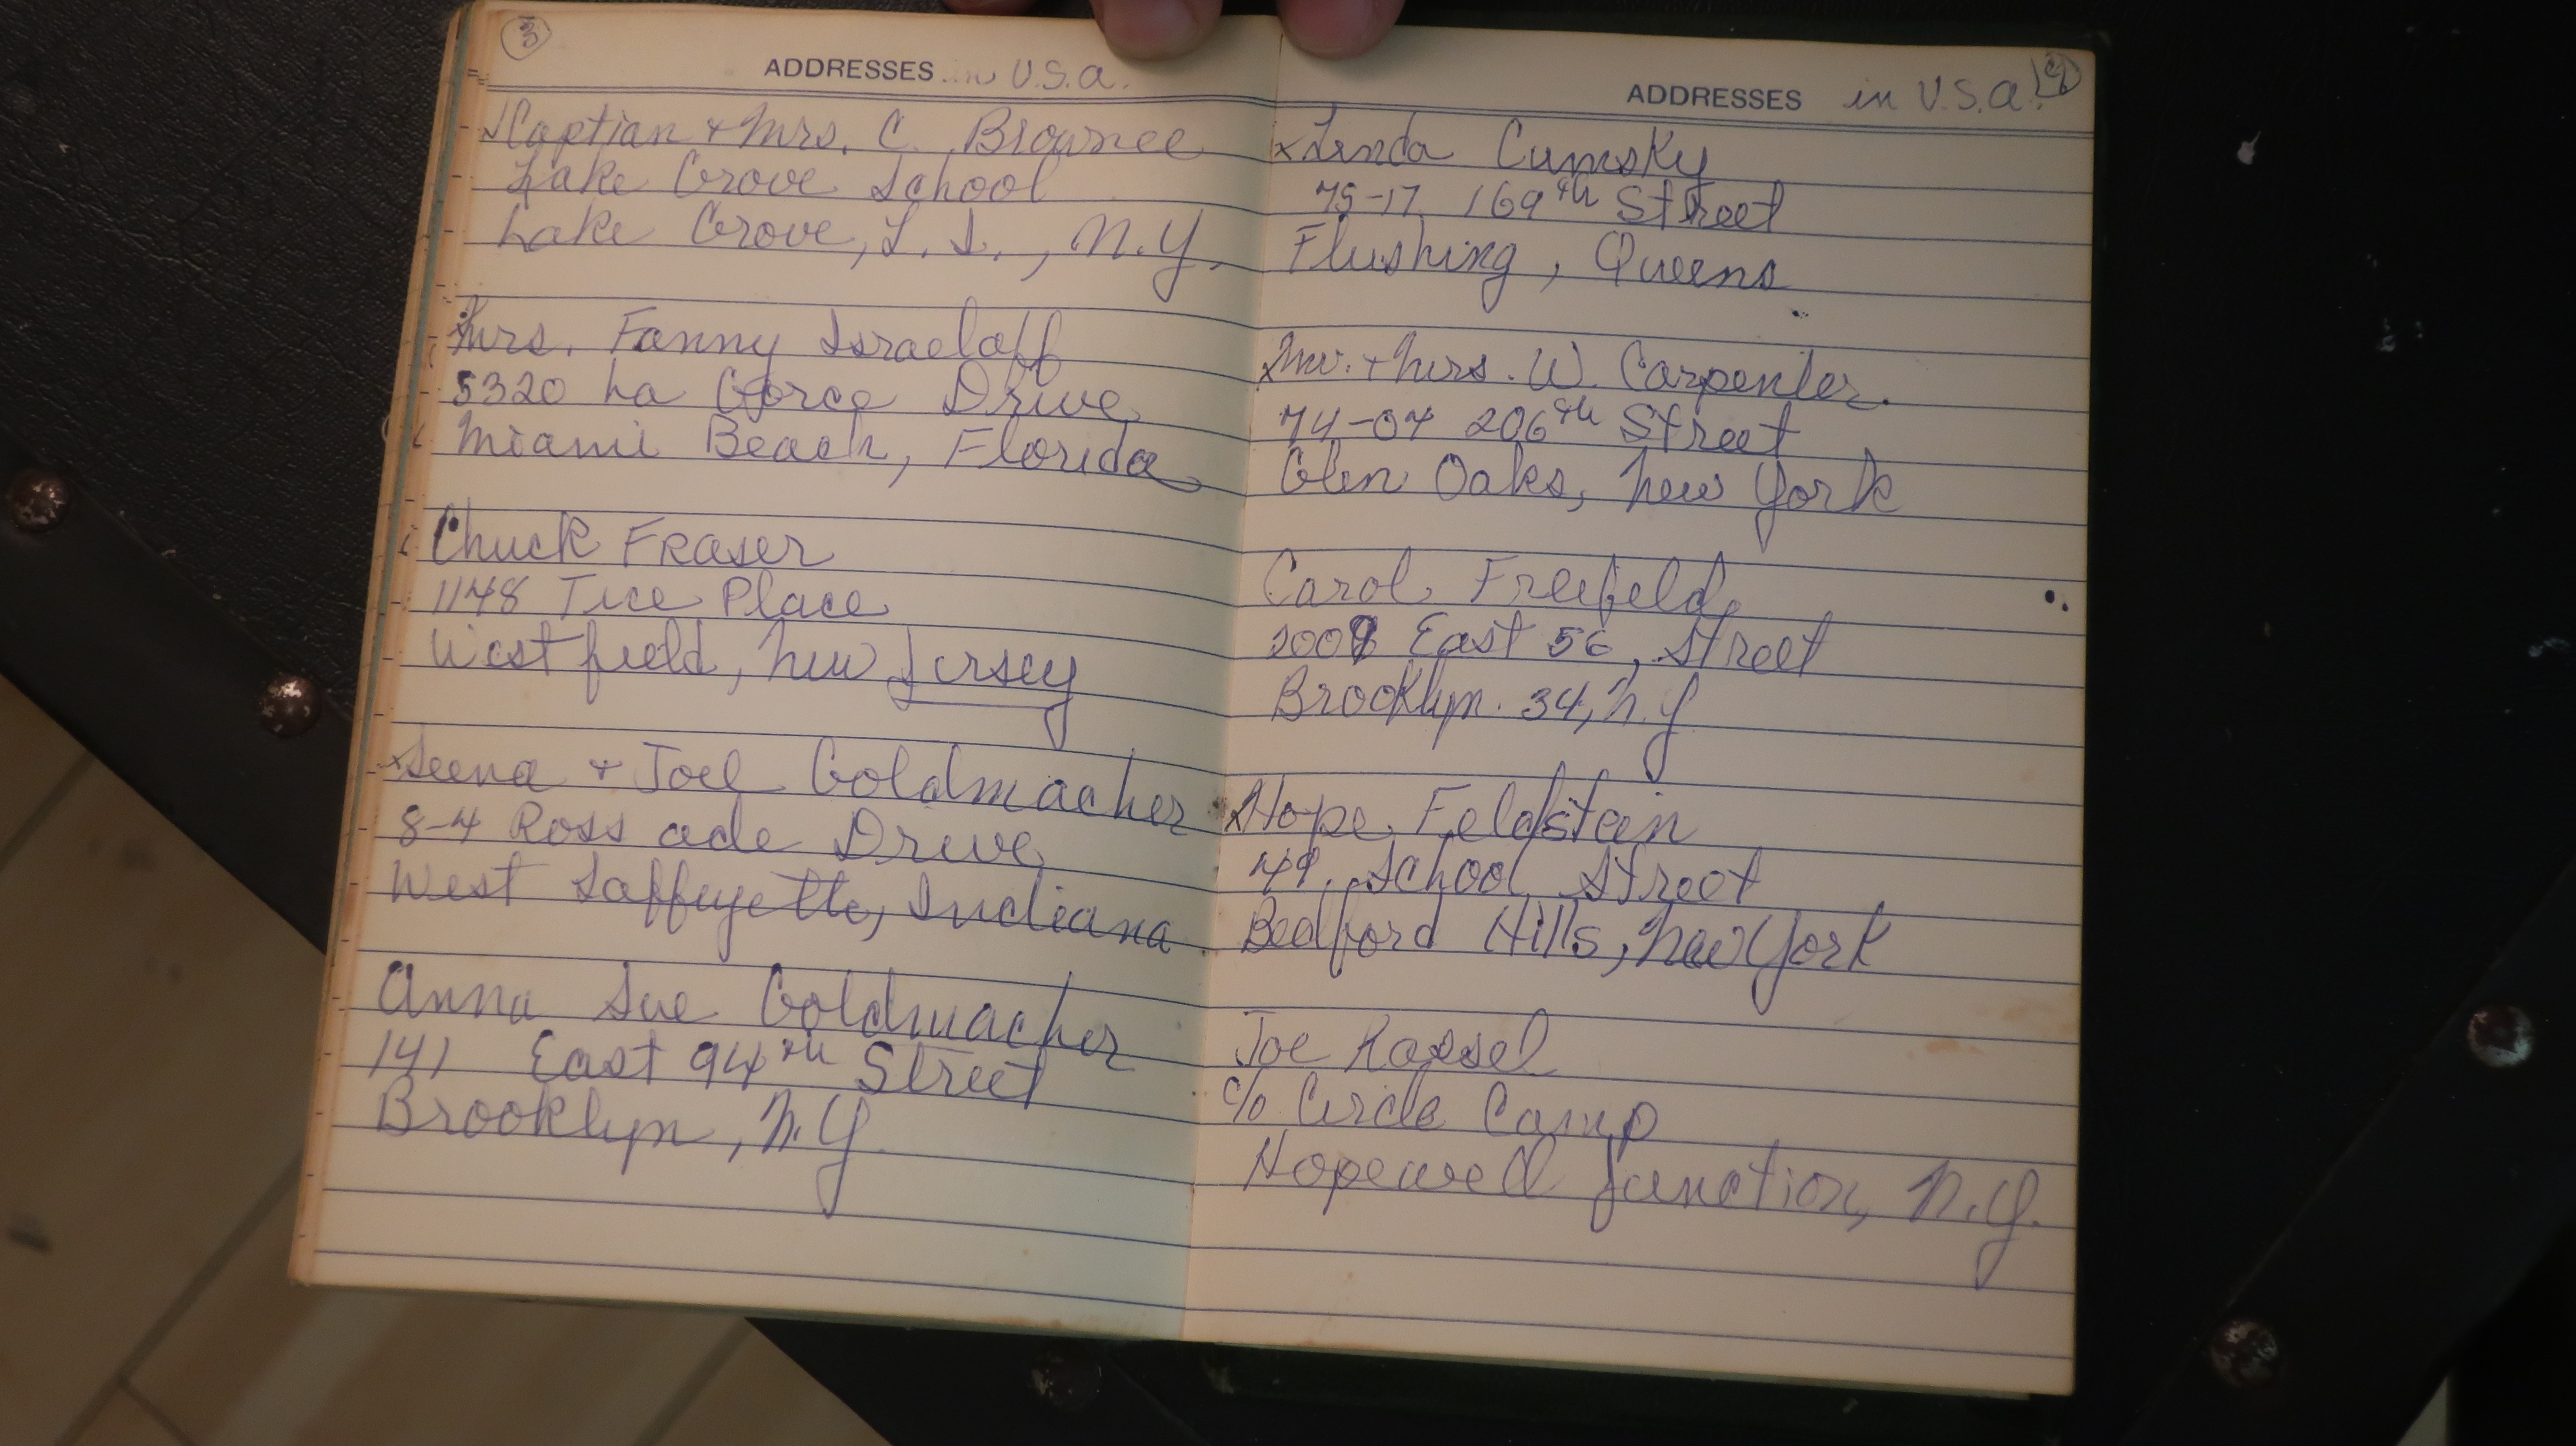 3
ADDRESSES in U.S.A.
Captian & Mrs. C. Brownee
Lake Grove School
Lake Grove, L. I., N.Y.
Mrs. Fanny Israeloff
5320 La Gorce Drive
Miami Beach, Florida
Chuck Fraser
1148 Tice Place
Westfield, New Jersey
x Seena & Joel Goldmacher
8-4 Ross ade Drive
West Laffuyette, Indiana
Anna Sue Goldmacher
141 East 94th Street
Brooklyn, N.Y.
ADDRESSES in U.S.A.
x Linda Cumsky
75-17 169th Street
Flushing, Queens
x Mr. & Mrs. W. Carpenter.
74-07 206th Street
Glen Oaks, New York
Carol Freefeld
2009 East 56, Street
Brooklyn. 34, N.Y
x Hope Feldstein
49, School Street
Bedford Hills, New York
Joe Rossel
c/o Circle Camp
Hopewell Junction, N.Y.